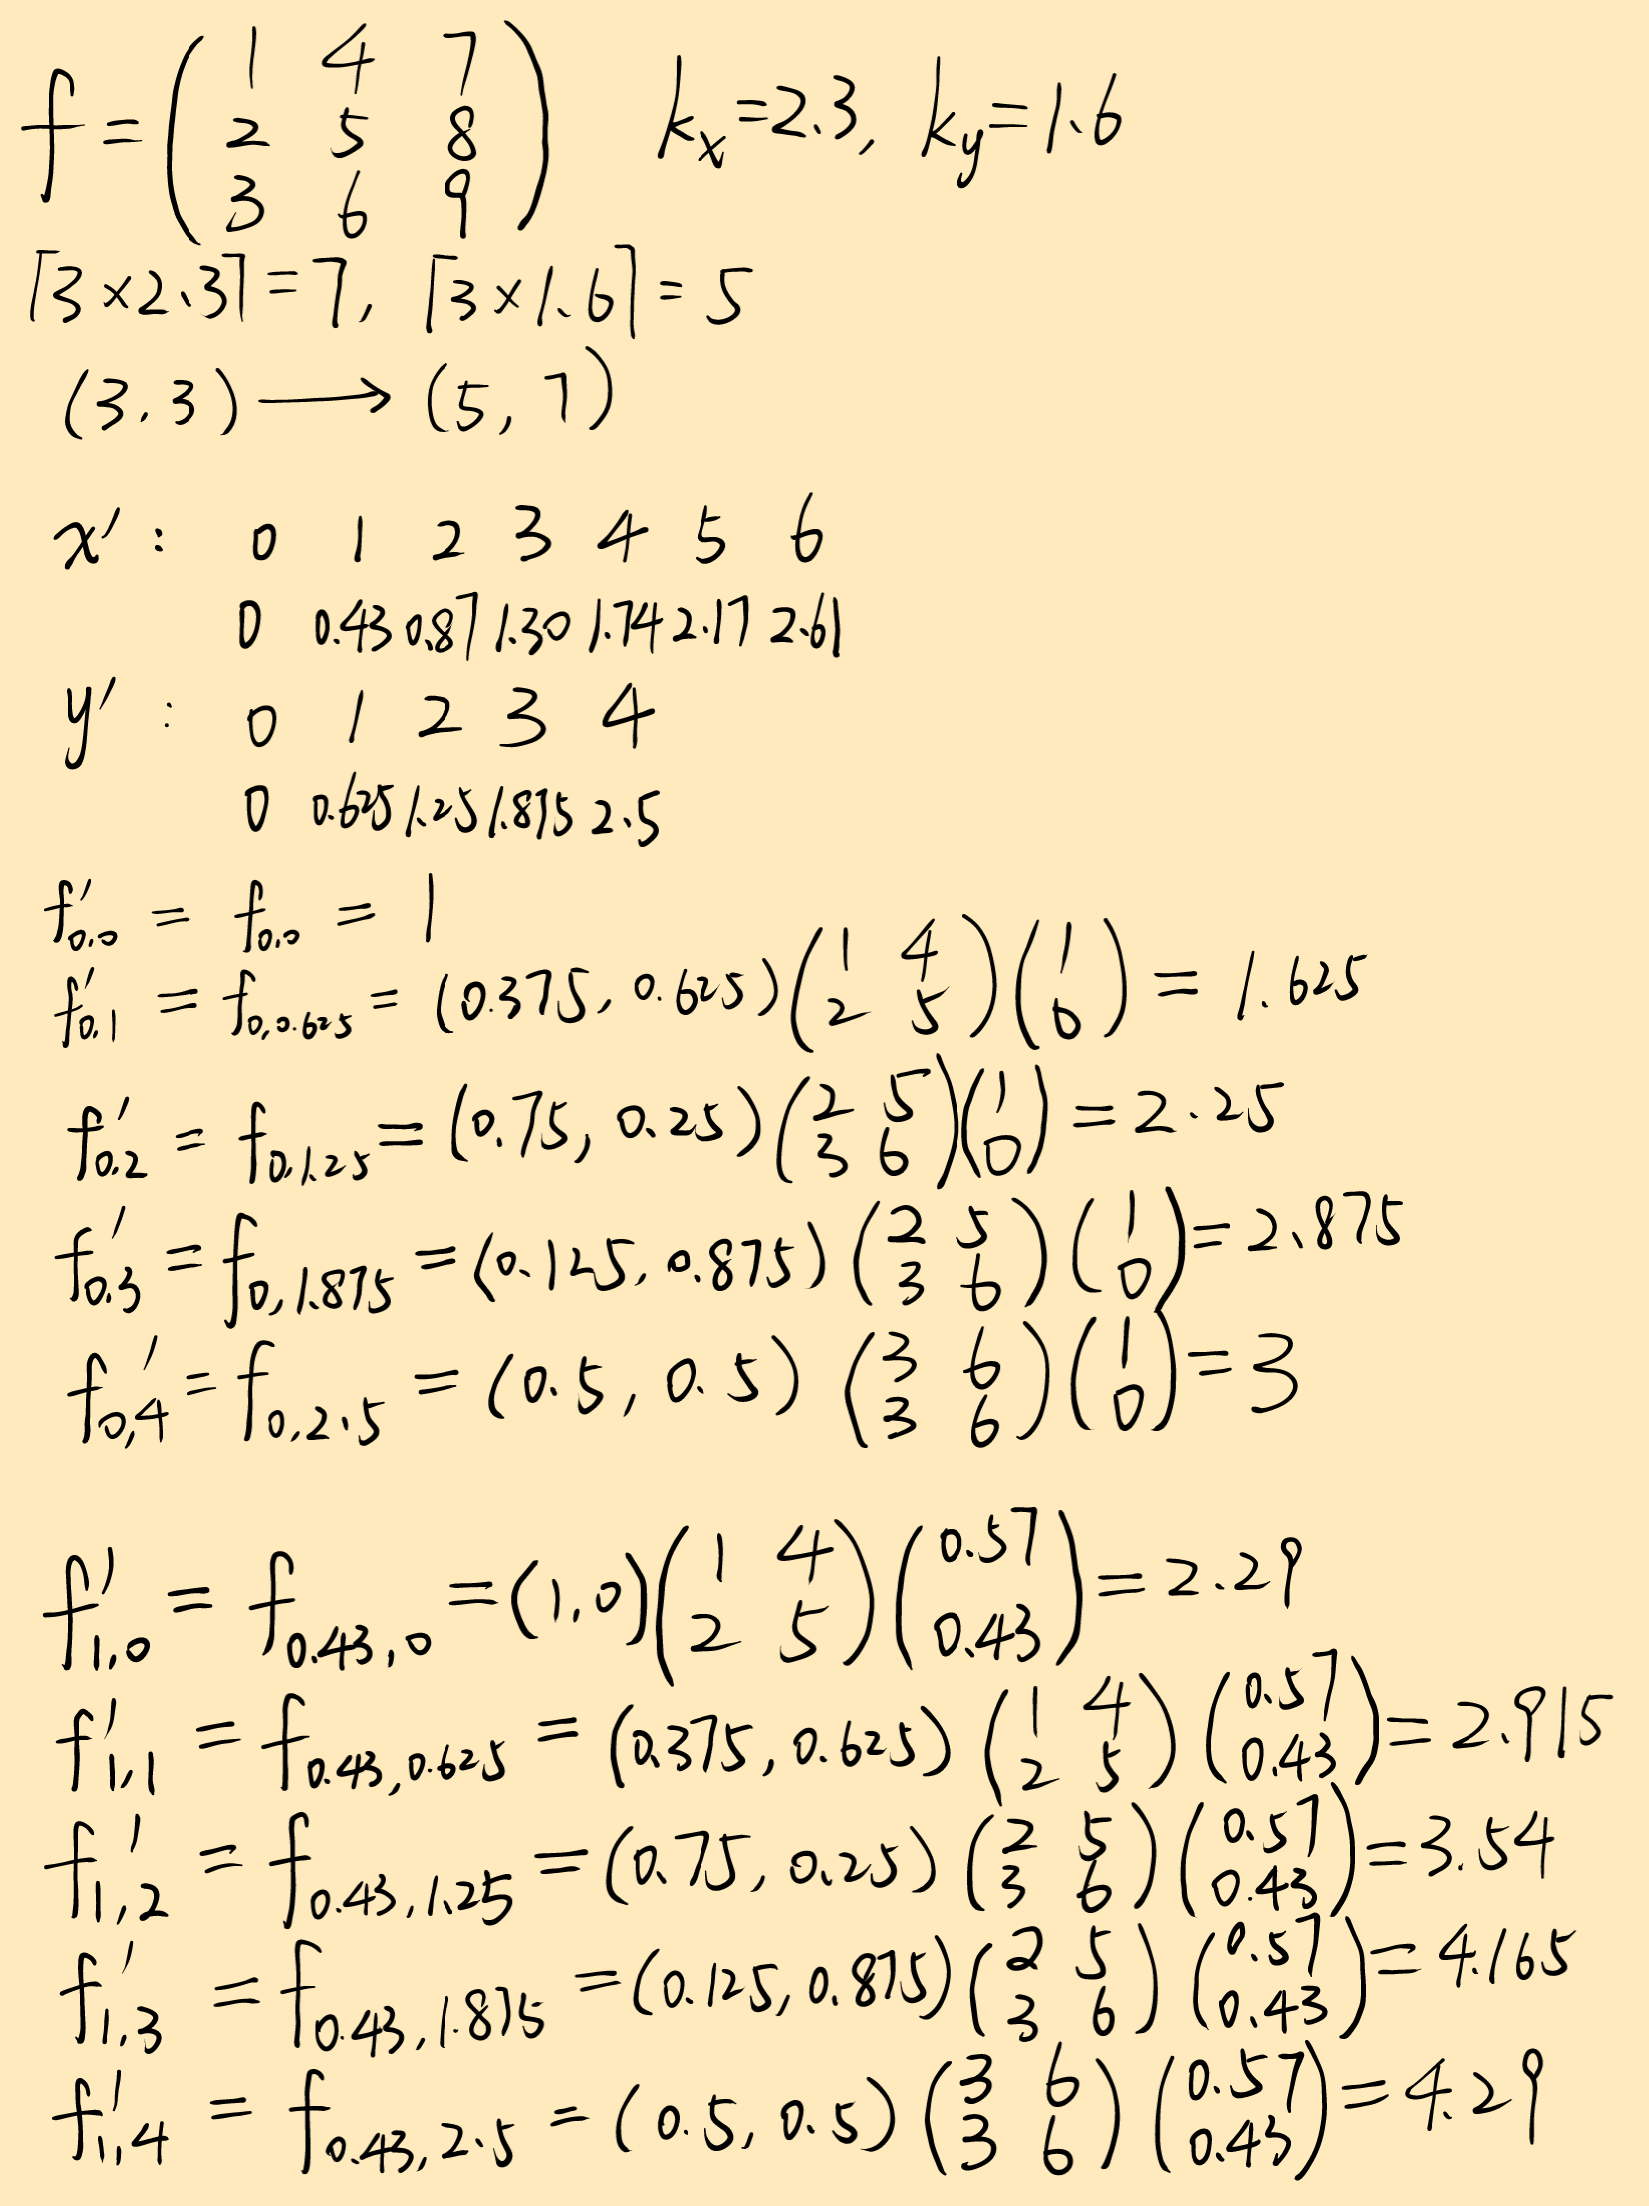 f = ( 1 4 7 ; 2 5 8 ; 3 6 9 ) kx=2.3, ky=1.6
⌈3×2.3⌉=7, ⌈3×1.6⌉=5
(3.3) ⟶ (5, 7)
x′ : 0 1 2 3 4 5 6
0 0.43 0.87 1.30 1.74 2.17 2.61
y′ : 0 1 2 3 4
0 0.625 1.25 1.875 2.5
f′0.0 = f0.0 = 1
f′0.1 = f0,0.625 = (0.375, 0.625)( 1 4 ; 2 5 )( 1 ; 0 ) = 1.625
f′0.2 = f0,1.25 = (0.75, 0.25)( 2 5 ; 3 6 )( 1 ; 0 ) = 2.25
f′0.3 = f0,1.875 = (0.125, 0.875)( 2 5 ; 3 6 )( 1 ; 0 ) = 2.875
f′0,4 = f0,2.5 = (0.5, 0.5)( 3 6 ; 3 6 )( 1 ; 0 ) = 3
f′1,0 = f0.43,0 = (1,0)( 1 4 ; 2 5 )( 0.57 ; 0.43 ) = 2.29
f′1,1 = f0.43,0.625 = (0.375, 0.625)( 1 4 ; 2 5 )( 0.57 ; 0.43 ) = 2.915
f′1,2 = f0.43,1.25 = (0.75, 0.25)( 2 5 ; 3 6 )( 0.57 ; 0.43 ) = 3.54
f′1,3 = f0.43,1.875 = (0.125, 0.875)( 2 5 ; 3 6 )( 0.57 ; 0.43 ) = 4.165
f′1,4 = f0.43,2.5 = (0.5, 0.5)( 3 6 ; 3 6 )( 0.57 ; 0.43 ) = 4.29